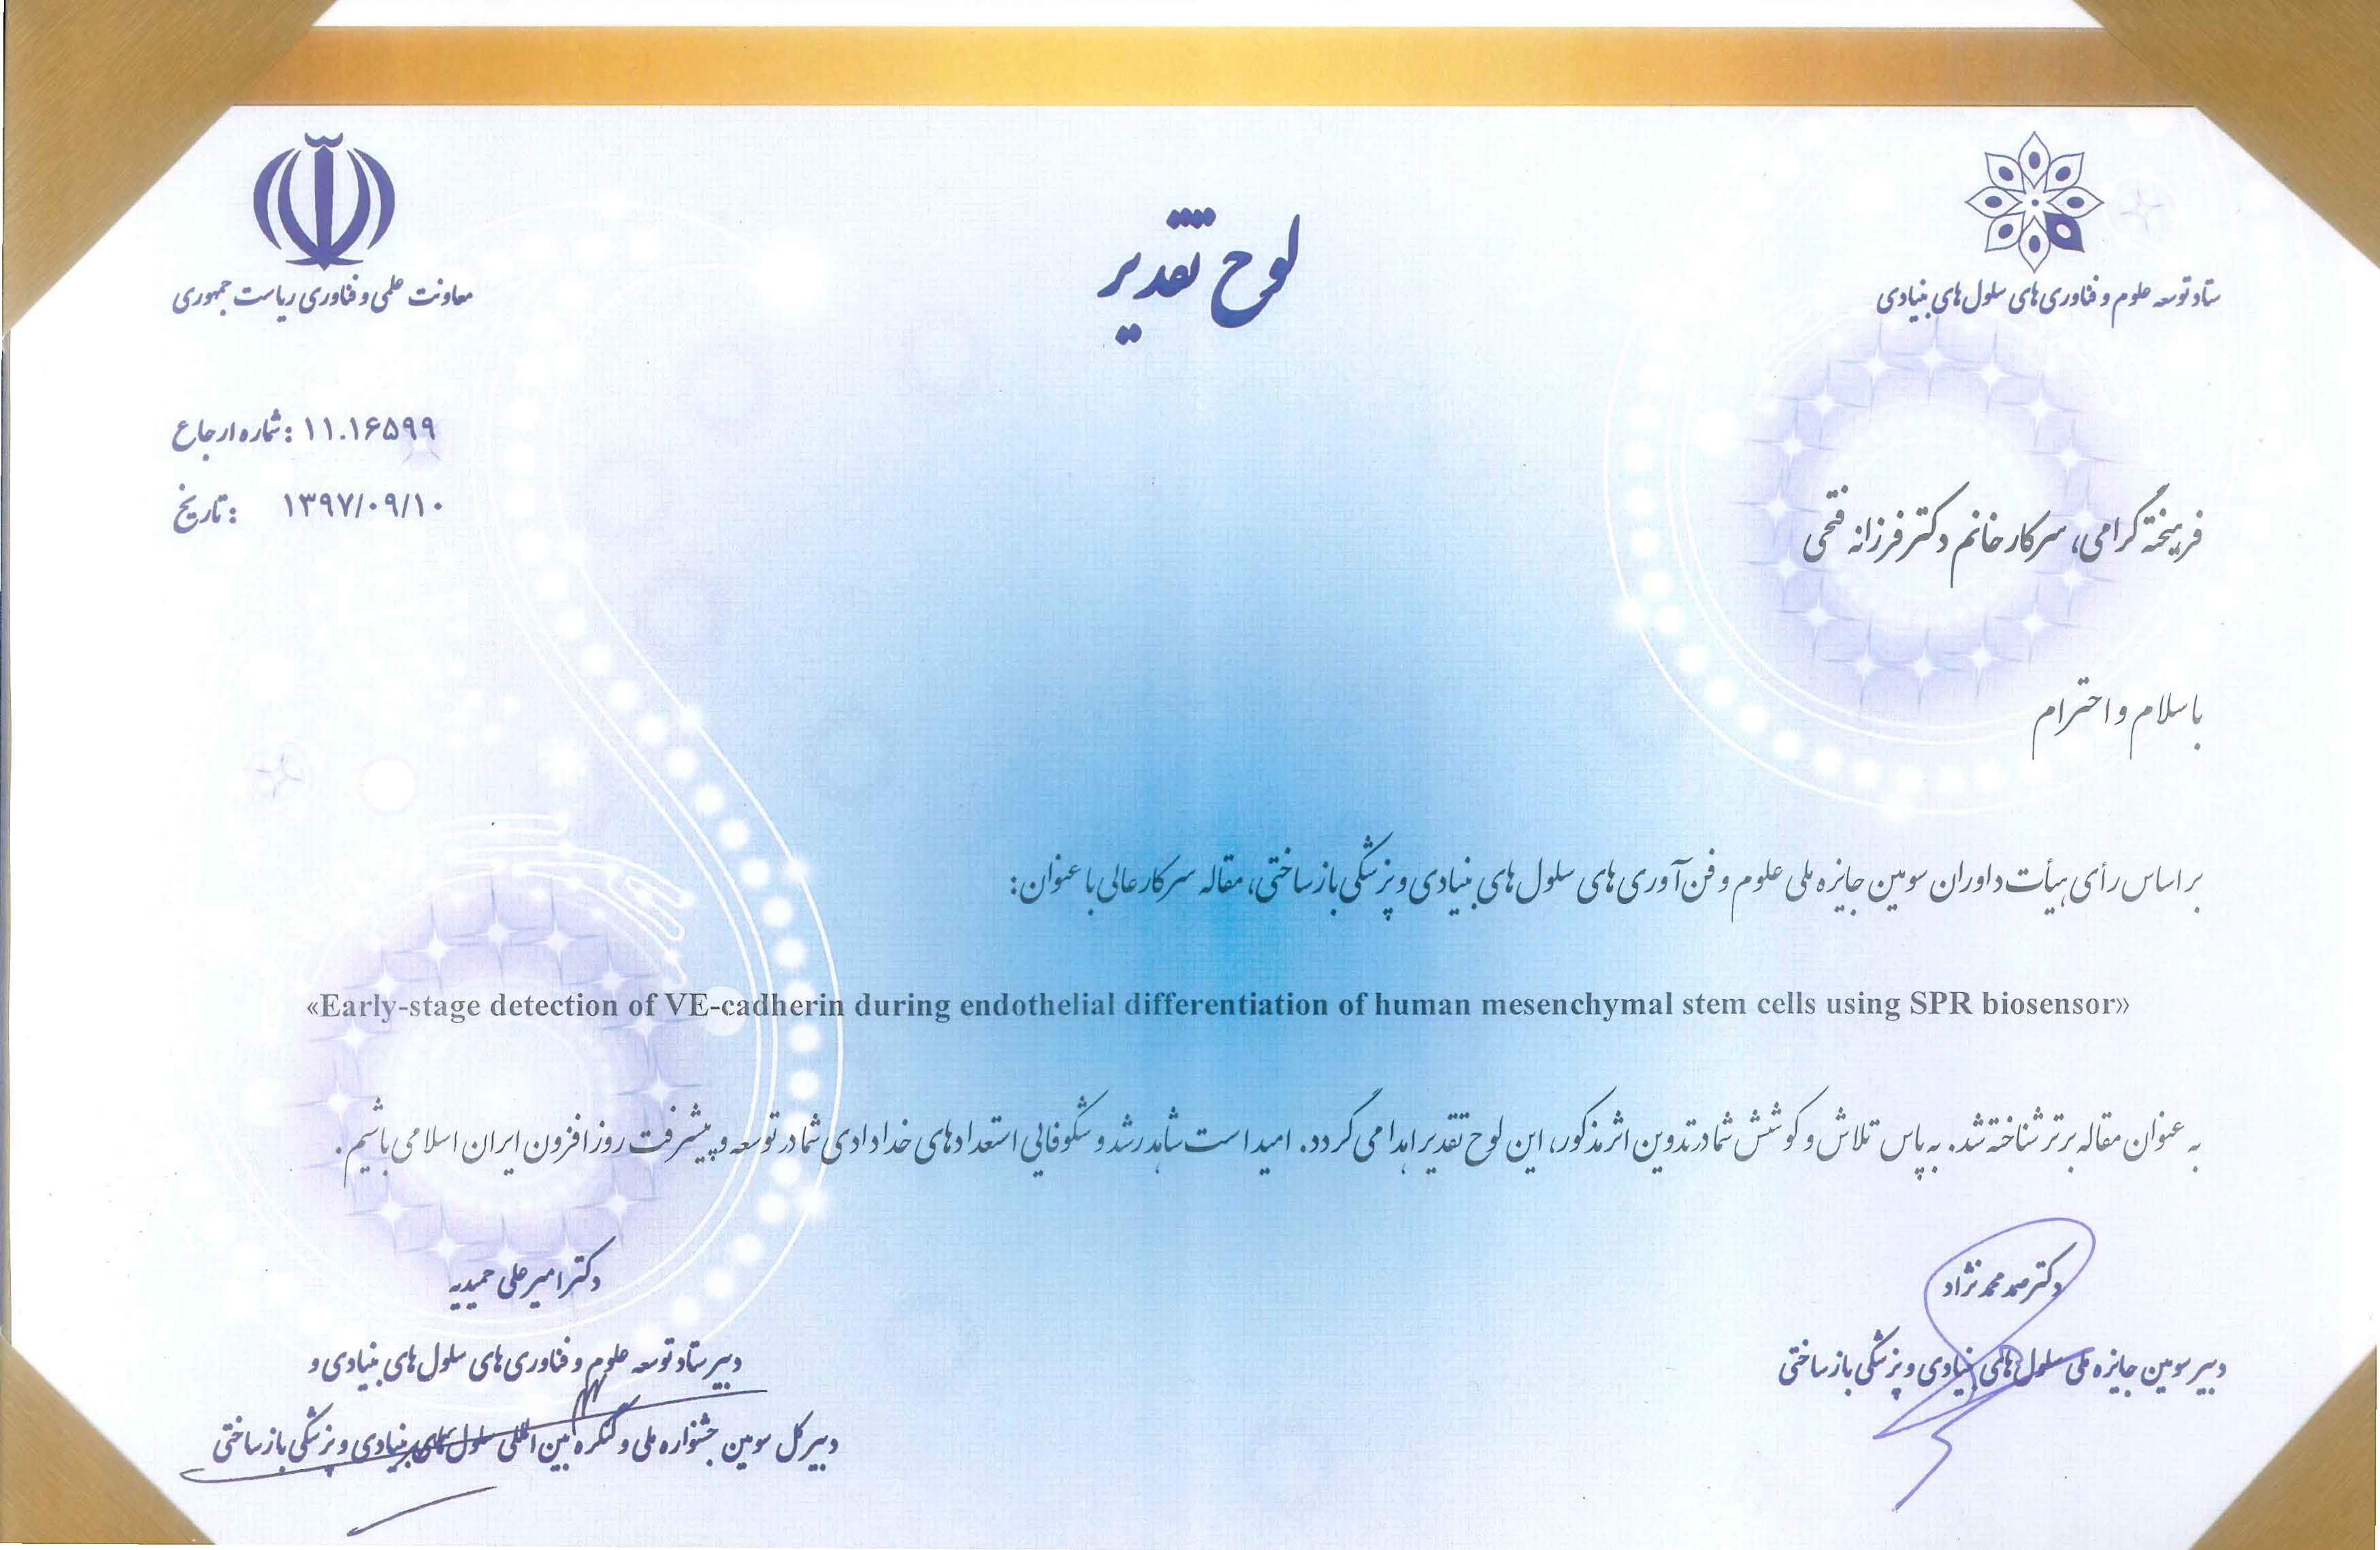 ستاد توسعه علوم و فناوری های سلول های بنیادی
معاونت علمی و فناوری ریاست جمهوری
لوح تقدیر
شماره ارجاع: ۱۱.۱۶۵۹۹
تاریخ: ۱۳۹۷/۰۹/۱۰
فرهیخته گرامی، سرکار خانم دکتر فرزانه فتحی
با سلام و احترام
بر اساس رأی هیأت داوران سومین جایزه ملی علوم و فن آوری های سلول های بنیادی و پزشکی بازساختی، مقاله سرکار عالی با عنوان:
«Early-stage detection of VE-cadherin during endothelial differentiation of human mesenchymal stem cells using SPR biosensor»
به عنوان مقاله برتر شناخته شد. به پاس تلاش و کوشش شما در تدوین اثر مذکور، این لوح تقدیر اهدا می گردد. امید است شاهد رشد و شکوفایی استعدادهای خدادادی شما در توسعه و پیشرفت روز افزون ایران اسلامی باشیم.
دکتر صمد محمدنژاد
دبیر سومین جایزه ملی سلول های بنیادی و پزشکی بازساختی
دکتر امیرعلی حمیدیه
دبیر ستاد توسعه علوم و فناوری های سلول های بنیادی و
دبیر کل سومین جشنواره ملی و کنگره بین المللی سلول های بنیادی و پزشکی بازساختی